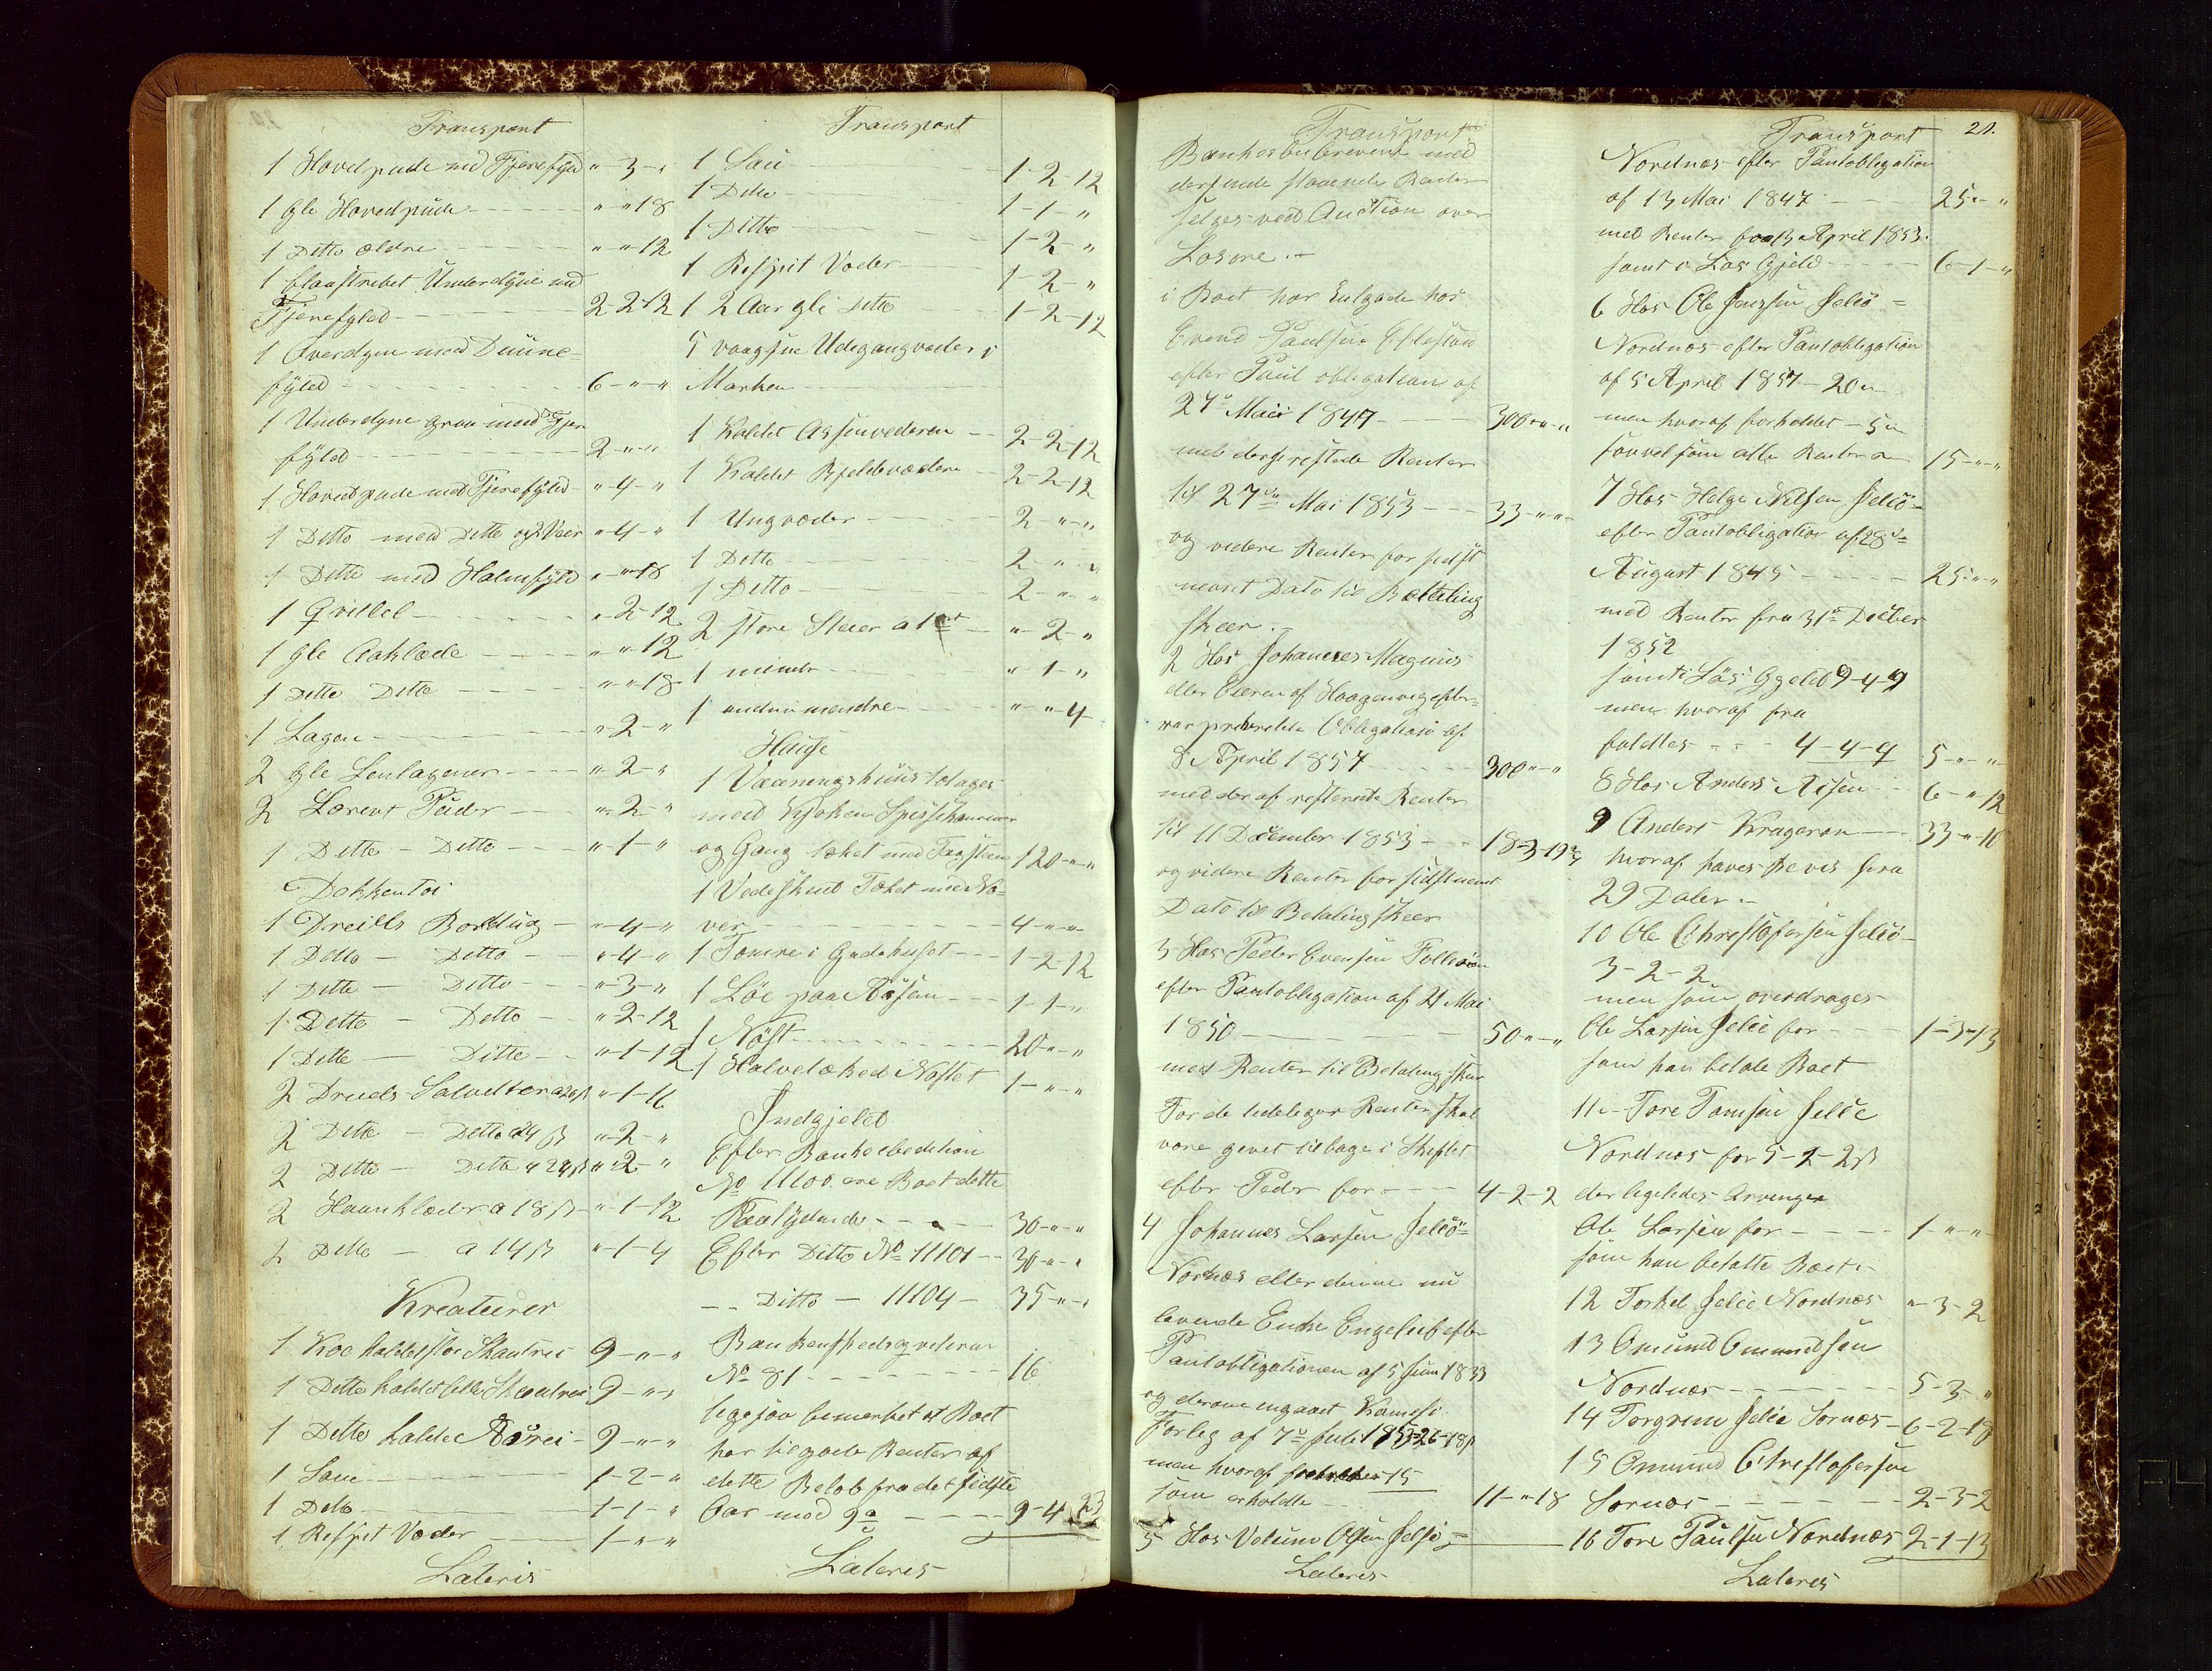 Transport
1 Hovedpude med Fjerefyld " 3 - "
1 gle Hovedpude " " 18
1 Ditto ældre " " 12
1 blaastribet Underdyne med
Fjerefyld 2-2-12
1 Overdyne med Duune-
fyld 6 - " - "
1 Underdyne graa med Fjer
fyld 2 - " "
1 Hovedpude med Fjerefyld " - 4 - "
1 Ditto med Ditto og 2 Veer " - 4 - "
1 Ditto med Halmfyld " - " 18
1 Qvittel " 2-12
1 gle Aaklæde " " 12
1 Ditto Ditto " " 18
1 Lagen " 2 - "
2 gle Lerlagener " - 2 - "
2 Lærevt Puder " 2 - "
1 Ditto - Ditto " - 1 - "
Dækketøi
1 Dreills Borddug " - 4 - "
1 Ditto - Ditto " - 4 - "
1 Ditto - Ditto " - 3 - "
1 Ditto - Ditto " 2-12
1 Ditto - Ditto " - 1 - 12
2 Dreils Salvetter a 20 β " - 1 - 16
2 Ditto - Ditto a 24 β " - 2 - "
2 Ditto - Ditto a 24 β " - 2 - "
2 Haanklæder a 18 β " - 1 - 12
2 Ditto - a 14 β " - 1 - 4
Kreaturer
1 Koe kaldet store Skautrei 9 - " - "
1 Ditto kaldet lille Skautrei 9 - " - "
1 Ditto kaldet Aarei 9 - " - "
1 Sau 1 - 2 - "
1 Ditto 1 - 1 - "
1 Bespit Væder 1 - " - "
Lateris
Transport
1 Sau 1-2-12
1 Ditto 1-1-"
1 Ditto 1-2-"
1 Bespit Væder 1-2-"
1 2 Aar gle Ditto 1-2-12
5 vaagsue Udegangvæder i
Marken
1 kaldet Aasenvæderen 2-2-12
1 kaldet Bjeldevædere 2-2-12
1 Ungvæder 2-"-"
1 Ditto 2-"-"
1 Ditto 2-"-"
2 store Steer a 1 ort "-2-"
1 mindre "-1-"
1 endnu mendre "-"-4
Huuse
1 Vaaningshuus tolages
med Kjøken Spisekammer
og Gang tækket med Tagsteen 120-"-"
1 Vedeskuul Tæket med Næ-
ver 4-"-"
1 Tømre i Gadehuset 1-2-12
1 Løe paa Aasen 1-1-"
1 Nøst 20-"-"
1 Halvetækked Nøstet 1-"-"
Indgjeld
Efter Bankoebedition
No 11100. ere Boet dette
Paalydende 30-"-"
Efter Ditto No 11101 30-"-"
-- Ditto - 11104 35-"-"
No 81 16
ligesaa bemærket at Boet
har tilgode Renter af
dette Beløb fra det sidste
Aar med 9-4-23
Lateris
Transport
selges ved Auction over
Løsøre.-
i Boet har Tilgode hos
Evend Paulsen
efter Pant obligation af
27de Mai 1847 300-"-"
med deraf restede Renter
til 27de Mai 1853 33-"-"
og videre Renter for sidst
nævnt Dato til Betaling
skeer.-
2 Hos Johannes Magnus
eller Eieren af Haagenvig efter
8 April 1857 300-"-"
med deraf resterede Renter
til 11 December 1853 18-3-19
og videre Renter for sidstnævnt
Dato til Betaling skeer
3 Hos Peder Evensen
efter Pantobligation af 21 Mai
1850 50-"-"
med Renter til Betaling skeer
For de Renter skal
være givet tilbage i Skiftet
efter Peder for 4-2-2
4 Johannes Larsen Seliø
Nornæs eller denne nu
levende Enke Engelief efter
Pantobligationen af 5 Juni 1833
Forleg af 7de Juli 1853
men hvoraf 15
som erholdte 11-"-18
5 Hos Velum Olsen Selsø
Lateris
Transport 20.
Nordnæs efter Pantobligation
af 13 Mai 1847 25-"-"
med Renter fra 13 April 1853.
samt i Løs Gjeld 6-1-"
6 Hos Ole Jensen Seliø
Nordnæs efter Pantobligation
af 5 April 1857 - 20"
men hvoraf forholdet - 5"
saavelsom alle Renter 15-"-"
7 Hos Helge Nilsen Seliø
efter Pantobligation af 28de
August 1845 25-"-"
med Renter fra 31te Decbr
1852
samt i Løs Gjeld 9-4-9
men hvoraf fra
faldtes 4-4-9 5-"-"
8 Hos Anders Aasen 6-"-12
9 Anders Krageran 33-"-16
hvoraf haves Bevis fra
29 Daler.-
10 Ole Christofersen Seliø
3-2-2
men som overdrages
Ole Larsen Seliø for 1-3-13
som han betale Boet
11 - Tore Tomsen Seliø
Nordnæs for 5-2-2 β
der ligeledes Arvingen
Ole Larsen for 1-"-"
som han betalte Boet.
12 Torkel Seliø Nordnæs "-3-2
13 Omund Omundsen
Nordnæs 5-3-"
14 Torgrim Seliø Sørnæs 6-2-18
15 Omund Christofersen
Sørnæs 2-3-2
16 Tore Paulsen Nordnæs 2-1-13
Lateris